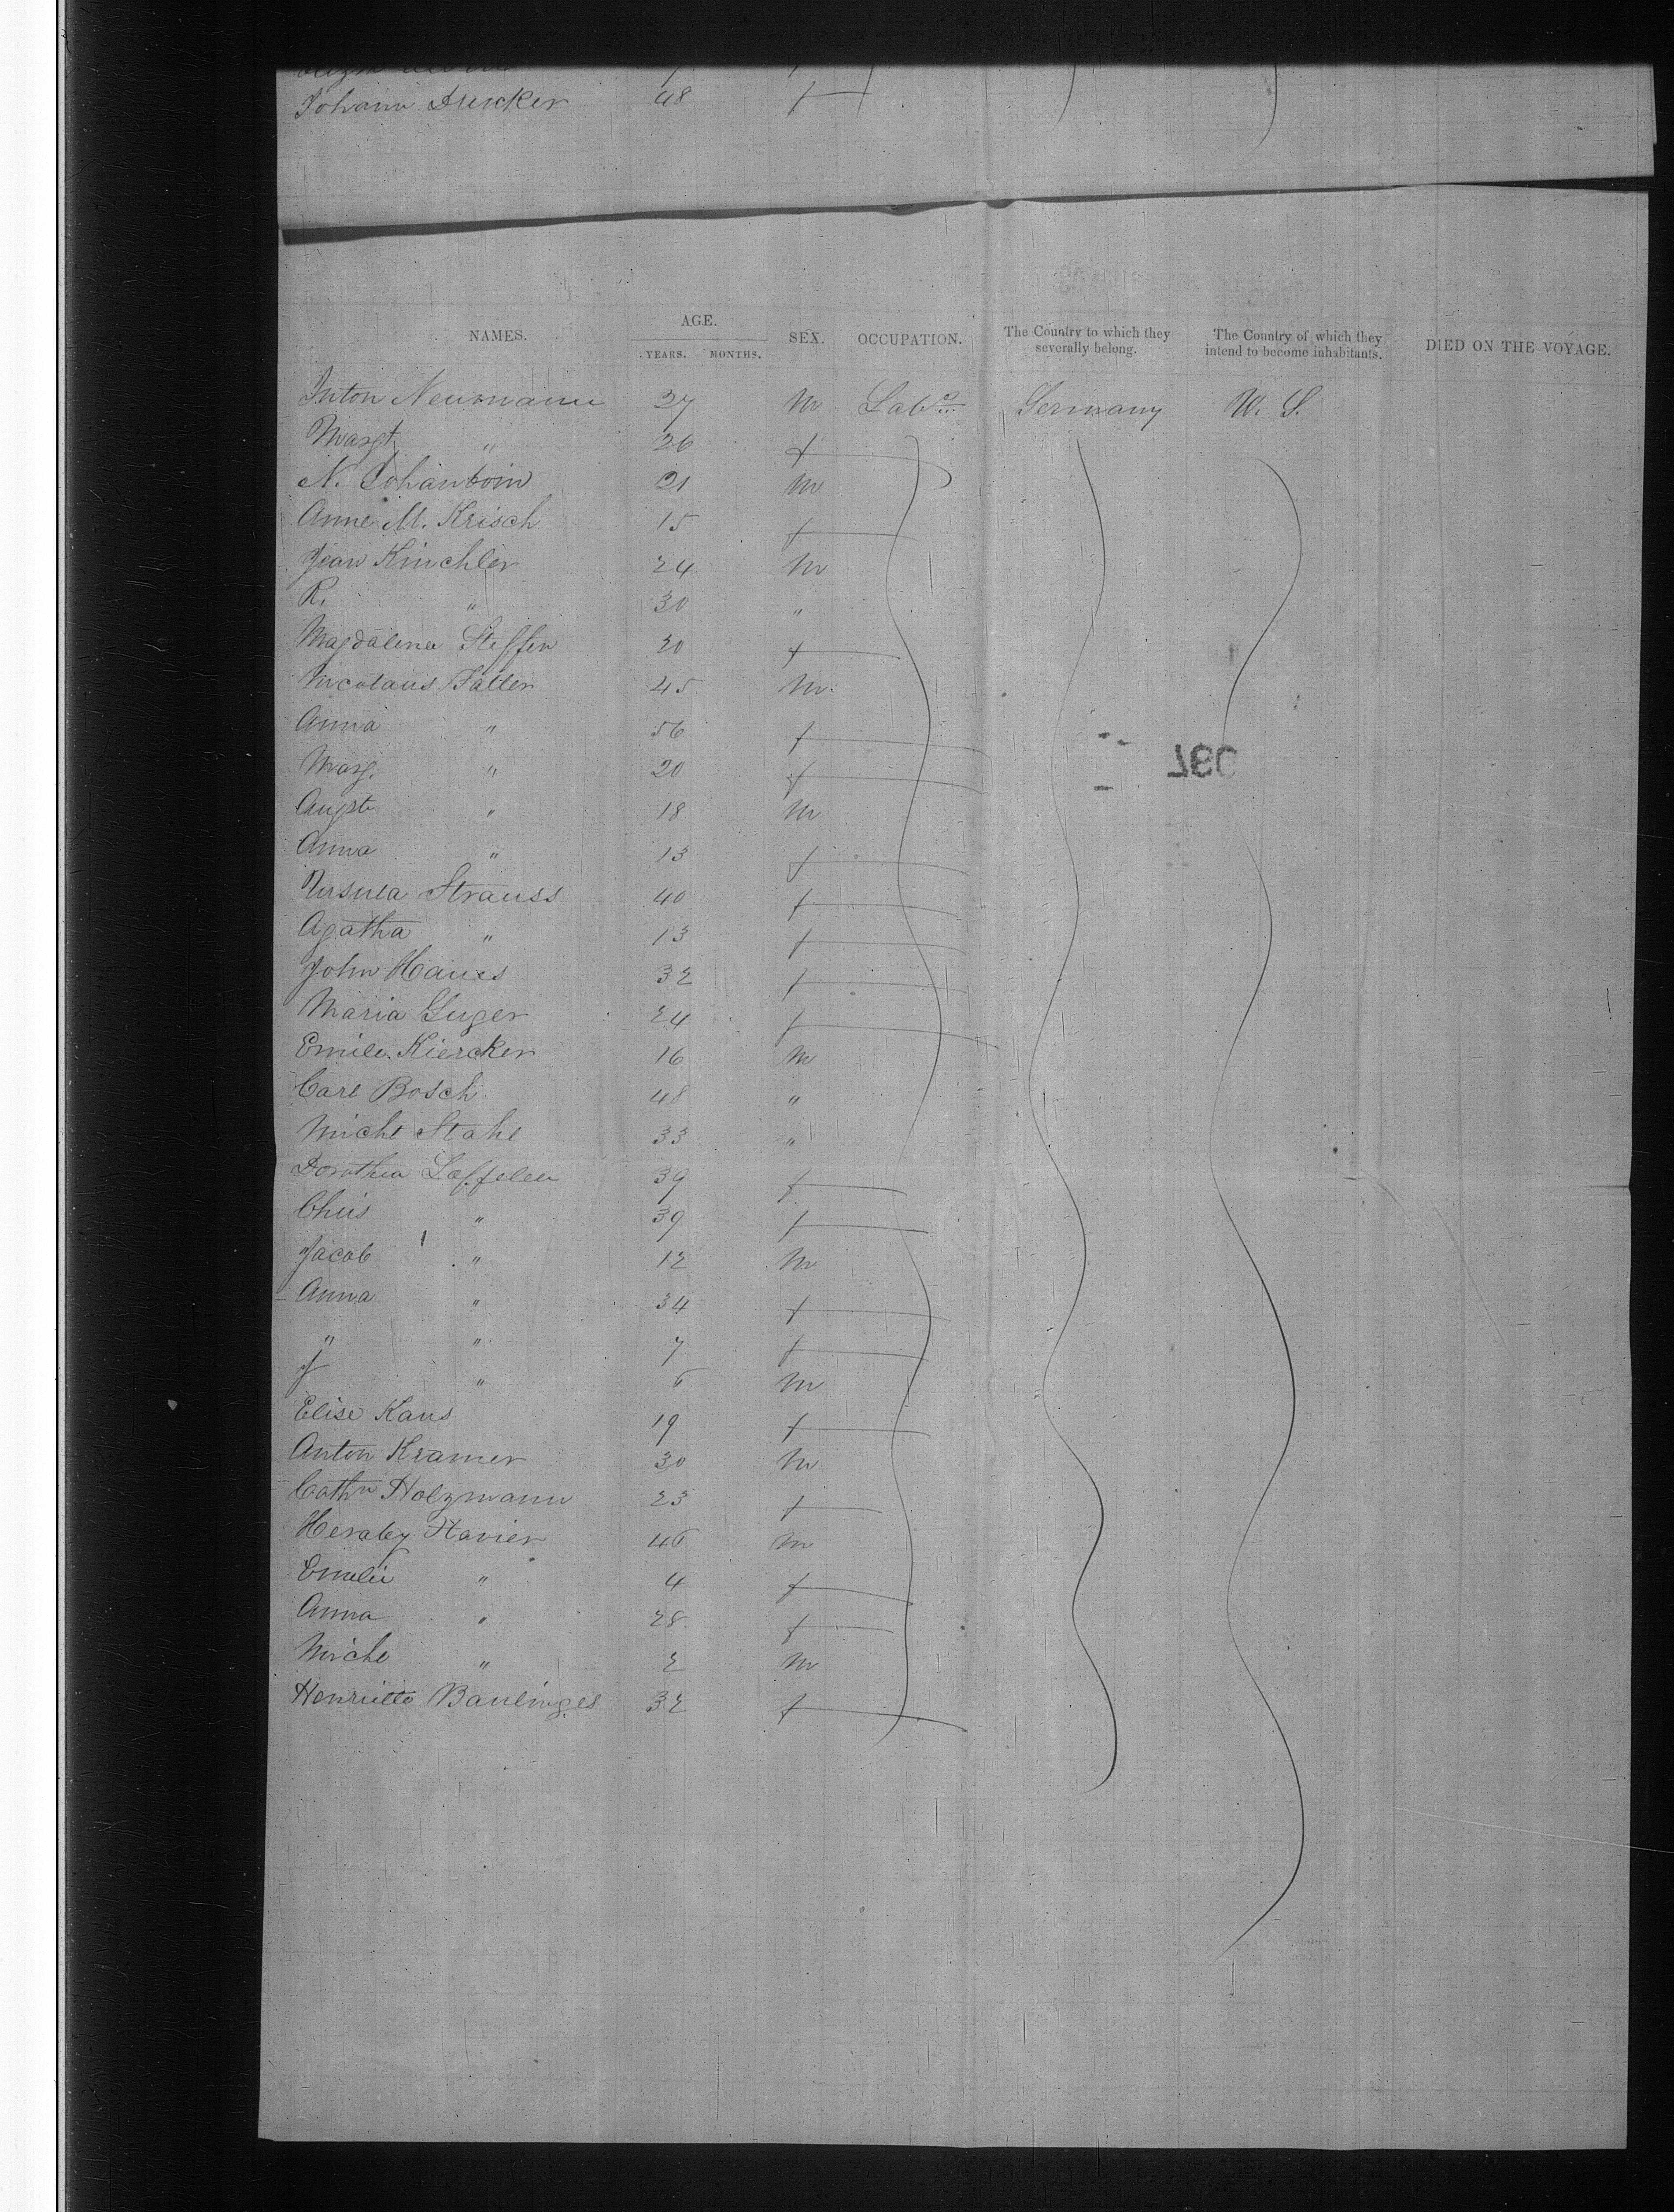 Johann Ducker 48 f
NAMES. AGE. YEARS. MONTHS. SEX. OCCUPATION. The Country to which they severally belong. The Country of which they intend to become inhabitants. DIED ON THE VOYAGE.
Anton Neumann 27 m Labr Germany U. S.
Margt " 26 f
N. 21 m
Anne M. Krisch 15 f
Jean Kinchler 24 m
R. " 30 "
Magdalena Steffen 20 f
Nicolaus Falter 45 m.
Anna " 56 f
Marg. " 20 f
Augst " 18 m
Anna " 13 f
Ursula Strauss 40 f
Agatha " 13 f
John Hanes 32 f
Maria Guger 24 f
Emile Kiercker 16 m
Carl Bosch 48 "
Michl Stahl 33 "
Dorothea Loffeler 39 f
Chris " 39 f
Jacob " 12 m
Anna " 34 f
" " 7 f
J " 6 m
Elise Kaus 19 f
Anton Kramer 30 m
Cathn Holzmann 23 f
Xavier 46 m
Emelie " 4 f
Anna " 28 f
Michl " 2 m
Henriette 32 f